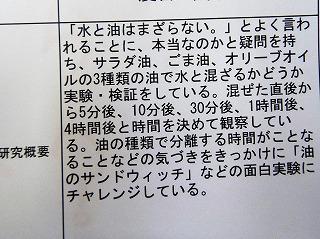 「水と油はまざらない。」とよく言わ
れることに、本当なのかと疑問を持
ち、サラダ油、ごま油、オリーブオイ
ルの3種類の油で水と混ざるかどうか
実験・検証をしている。混ぜた直後か
ら5分後、10分後、30分後、1時間後、
4時間後と時間を決めて観察してい
る。油の種類で分離する時間がことな
ることなどの気づきをきっかけに「油
のサンドウィッチ」などの面白実験に
チャレンジしている。
研究概要